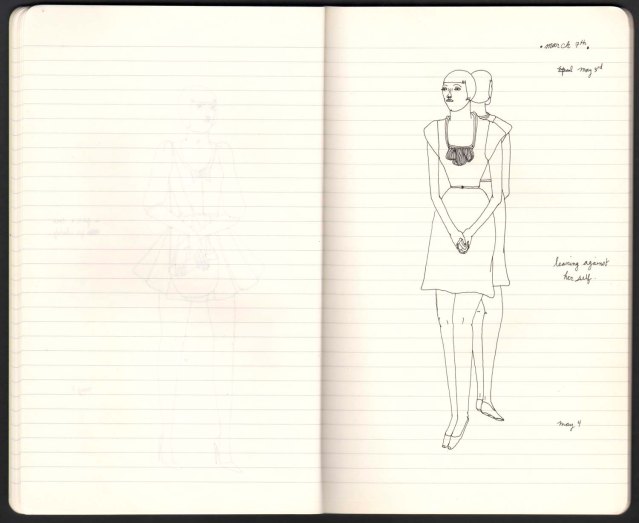 • march 7th.
april may 3rd
leaning against
her self
may 4